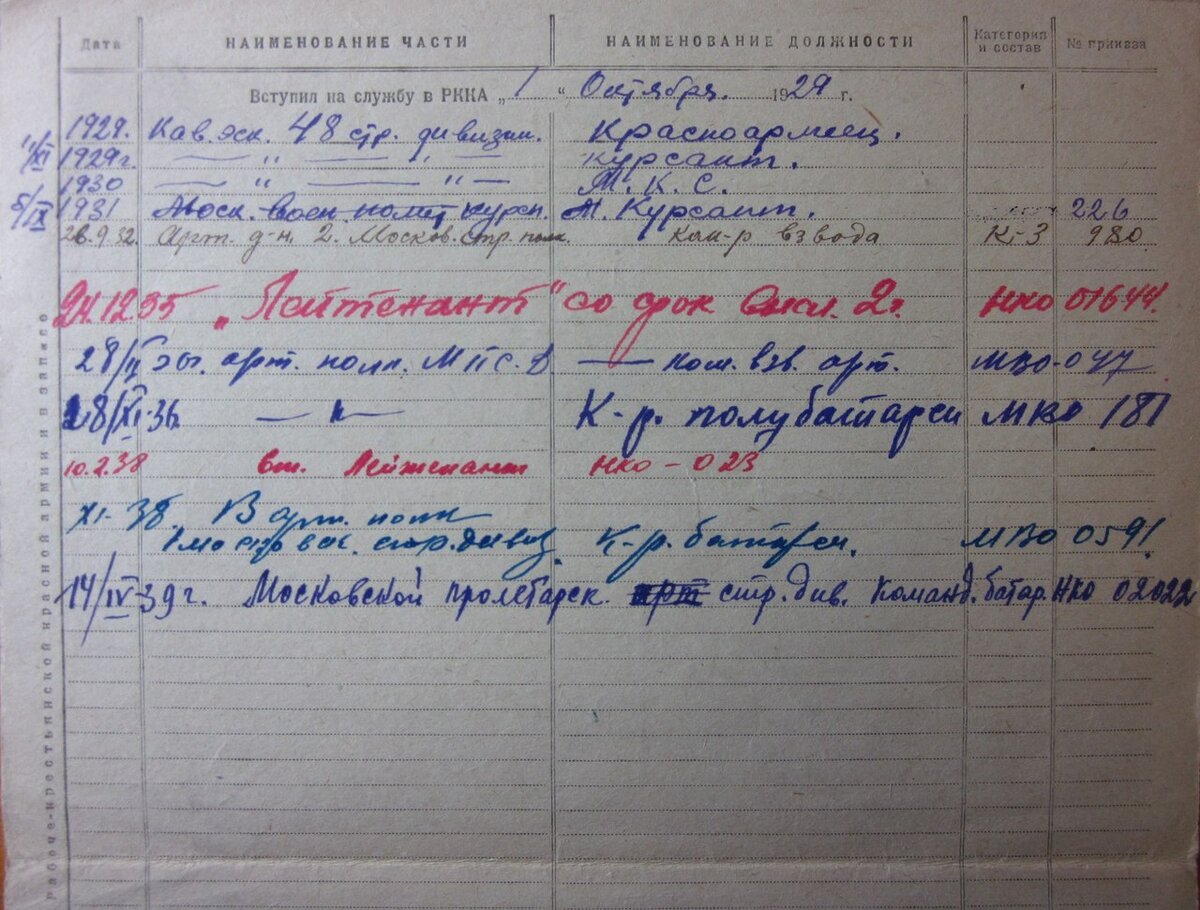 Дата НАИМЕНОВАНИЕ ЧАСТИ НАИМЕНОВАНИЕ ДОЛЖНОСТИ Категория и состав № приказа
Вступил на службу в РККА „1“ Октября 1929 г.
1929. Кав. эск. 48 стр. дивизии. Красноармеец.
/XI 1929г. — " — " — курсант.
1930 — " — " — М. К. С.
5/IX 1931 Моск. воен полит курсы. М. Курсант. 226
26.9.32. Арт. д-н. 2. Москов. стр. полк. Ком-р взвода К-3 980
24.12 35 „Лейтенант“ со срок 2г. НКО 01644.
28/ арт. полк. М П С. Д — ком. взв. арт. МВО-047
28/XI-36 — " — К-р. полубатареи МКО 181
10.2.38 вт. Лейтенант НКО - 023
XI-38. В арт. полк
1 моск стр. дивиз. К-р. батареи. МВО 0591.
14/IV-39г. Московской пролетарск. стр. див. Команд. батар. НКО 02022
рабоче-крестьянской красной армии и запасо